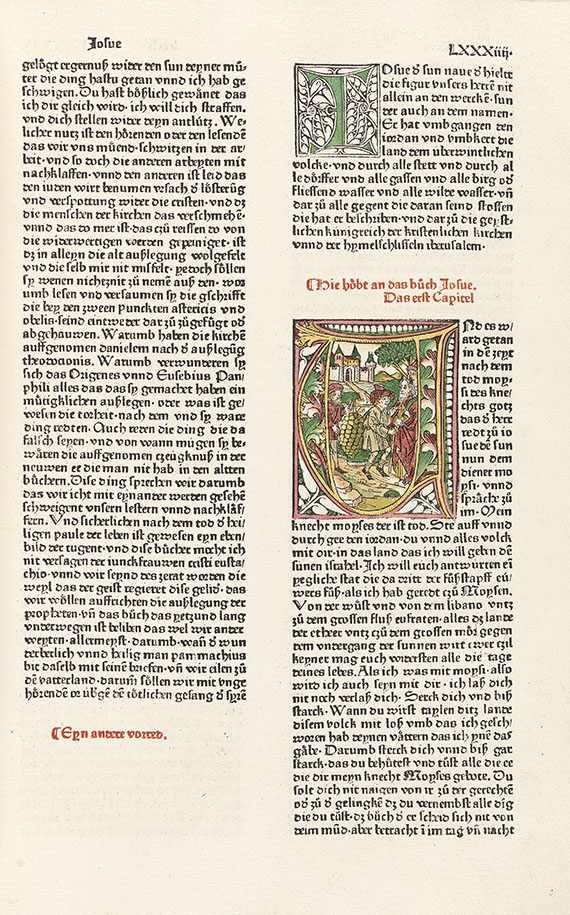 Josue
LXXXiiij.
gelögt ergernuß wider den sun deyner mů⸗
ter die ding hastu getan vnnd ich hab ge
schwigen. Du hast bößlich gewänet das
ich dir gleich wird· ich will dich straffen.
vnd dich stellen wider deyn antlütz. We⸗
licher nutz ist den hörenden oder den lesenden
das wir vns müend· schwitzen in der ar⸗
beit· vnd so doch die anderen arbeyten mit
nachklaffen· vnnd den anderen ist leid das
den iuden wirt benumen vrsach d̕ lösterūg
vnd verspottung wider die cristen· vnd dz
die menschen der kirchen das verschmehē·
vnnd das to mer ist· das czů reissen to von
die widerwertigen werden gepeiniget· ist
dz in alleyn die alt außlegung wolgefelt
vnd die selb mir nit missfelt· yedoch söllen
sy wenen nichtznit zů nemē auß den· wor
umb lesen vnd versaumen sy die gschrifft
die bey den zween punckten astericis vnd
obelis· seind eintweder dar zů zůgefügt od̕
abgehauwen. Warumb haben die kirchē
auffgenomen danielem nach d̕ außlegūg
theodocionis. Warumb verwunderen sy
sich das Origenes vnnd Eusebius Pan/
phili alles das das sy gemachet haben ein
mütigklichen außlegen· oder was ist ge/
wesen die torheit· nach dem vnd sy ware
ding redten. Auch reden die ding die da
falsch seyen· vnd von wann mügen sy be⸗
wären die auffgenomen czeügknuß in der
neuwen ee die man nit hab in den altten
büchern. Dise ding sprechen wir darumb
das wir icht mit eynander werden gesehē
schweigent vnsern lestern vnnd nachkläf/
fern. Vnd sicherlichen nach dem tod d̕ hei/
ligen paule der leben ist gewesen eyn eben/
bild der tugent· vnd dise bücher mocht ich
nit versagen der iunckfrauwen cristi eusta/
chio· vnnd wir seynd des zerat worden die
weyl das der geist regieret dise gelid· das
wir wöllen auffrichten die außlegung der
propheten· vñ das bůch das yetzund lang
vnderwegen ist beliben das wel wir ander
weyten· allermeyst· darumb· wañ d̕ wun
derberlich vnnd heilig man pammachius
bit daselb mit seinē briefen· vñ wir eilen zů
dē vatterland· darum̄ söllen wir mit vnge
hörendē or übgē dē tötlichen gesang d̕ syrē
Eyn andere vorred.
IOsue d̕ sun naue d̕ hielte
die figur vnsers herrē nit
allein an den werckē· sun
der auch an dem namen·
Er hat vmbgangen den
iordan vnd vmbkert die
land dem überwintlichen
volcke· vnd durch alle stett vnd durch al
le dörffer vnd alle gassen vnd alle birg od̕
fliessend wasser vnd alle wilde wasser· vñ
dar zů alle gegent die daran seind stossen
die hat er beschriben· vnd dar zů die geyst⸗
lichen künigreich der kristenlichen kirchen
vnnd der hymelschlisseln iherusalem·
Hie höbt an das bůch Josue.
Das erst Capitel
UNd es w/
ard getan
in dē zeyt
nach dem
tod moy⸗
si des kne/
chts gotz
das d̕ herr
redt zů io
sue dē sun
nun dem
diener mo
ysi· vnnd
sprache zů
im· Mein
knecht moyses der ist tod. Ste auff vnnd
durch gee den iordan· du vnnd alles volck
mit dir· in das land das ich will geben dē
sünen israhel· Ich will euch antwurten eī
yegliche stat die da tritt der fůßstapff eü/
wers fůß· als ich hab geredt czů Moysen.
Von der wůst vnd von dem libano vntz
zů dem grossen fluß eufraten· alles dz lande
der etheer vntz czů dem grossen mör gegen
dem vndergang der sunnen wirt ewer czil
keyner mag euch widersten alle die tage
deines lebes. Als ich was mit moysi· also
wird ich auch seyn mit dir· ich laß dich
nit noch verlaß dich· Sterck dich vnd biß
starck· Wann du wirst taylen ditz lande
disem volck mit loß vmb das ich gesch/
woren hab deynen vättern das ich ynē das
gäbe· Darumb sterck dich vnnd biß gar
starck· das du behütest vnd tüst alle die ee
die dir meyn knecht Moyses gebote. Du
solt dich nit naigen von ir zů der gerechtē
od̕ zů d̕ gelingkē dz du vernembst alle dīg
die du tůst· dz bůch d̕ ee scheid sich nit von
deim mūd· aber betracht ī im tag vñ nacht